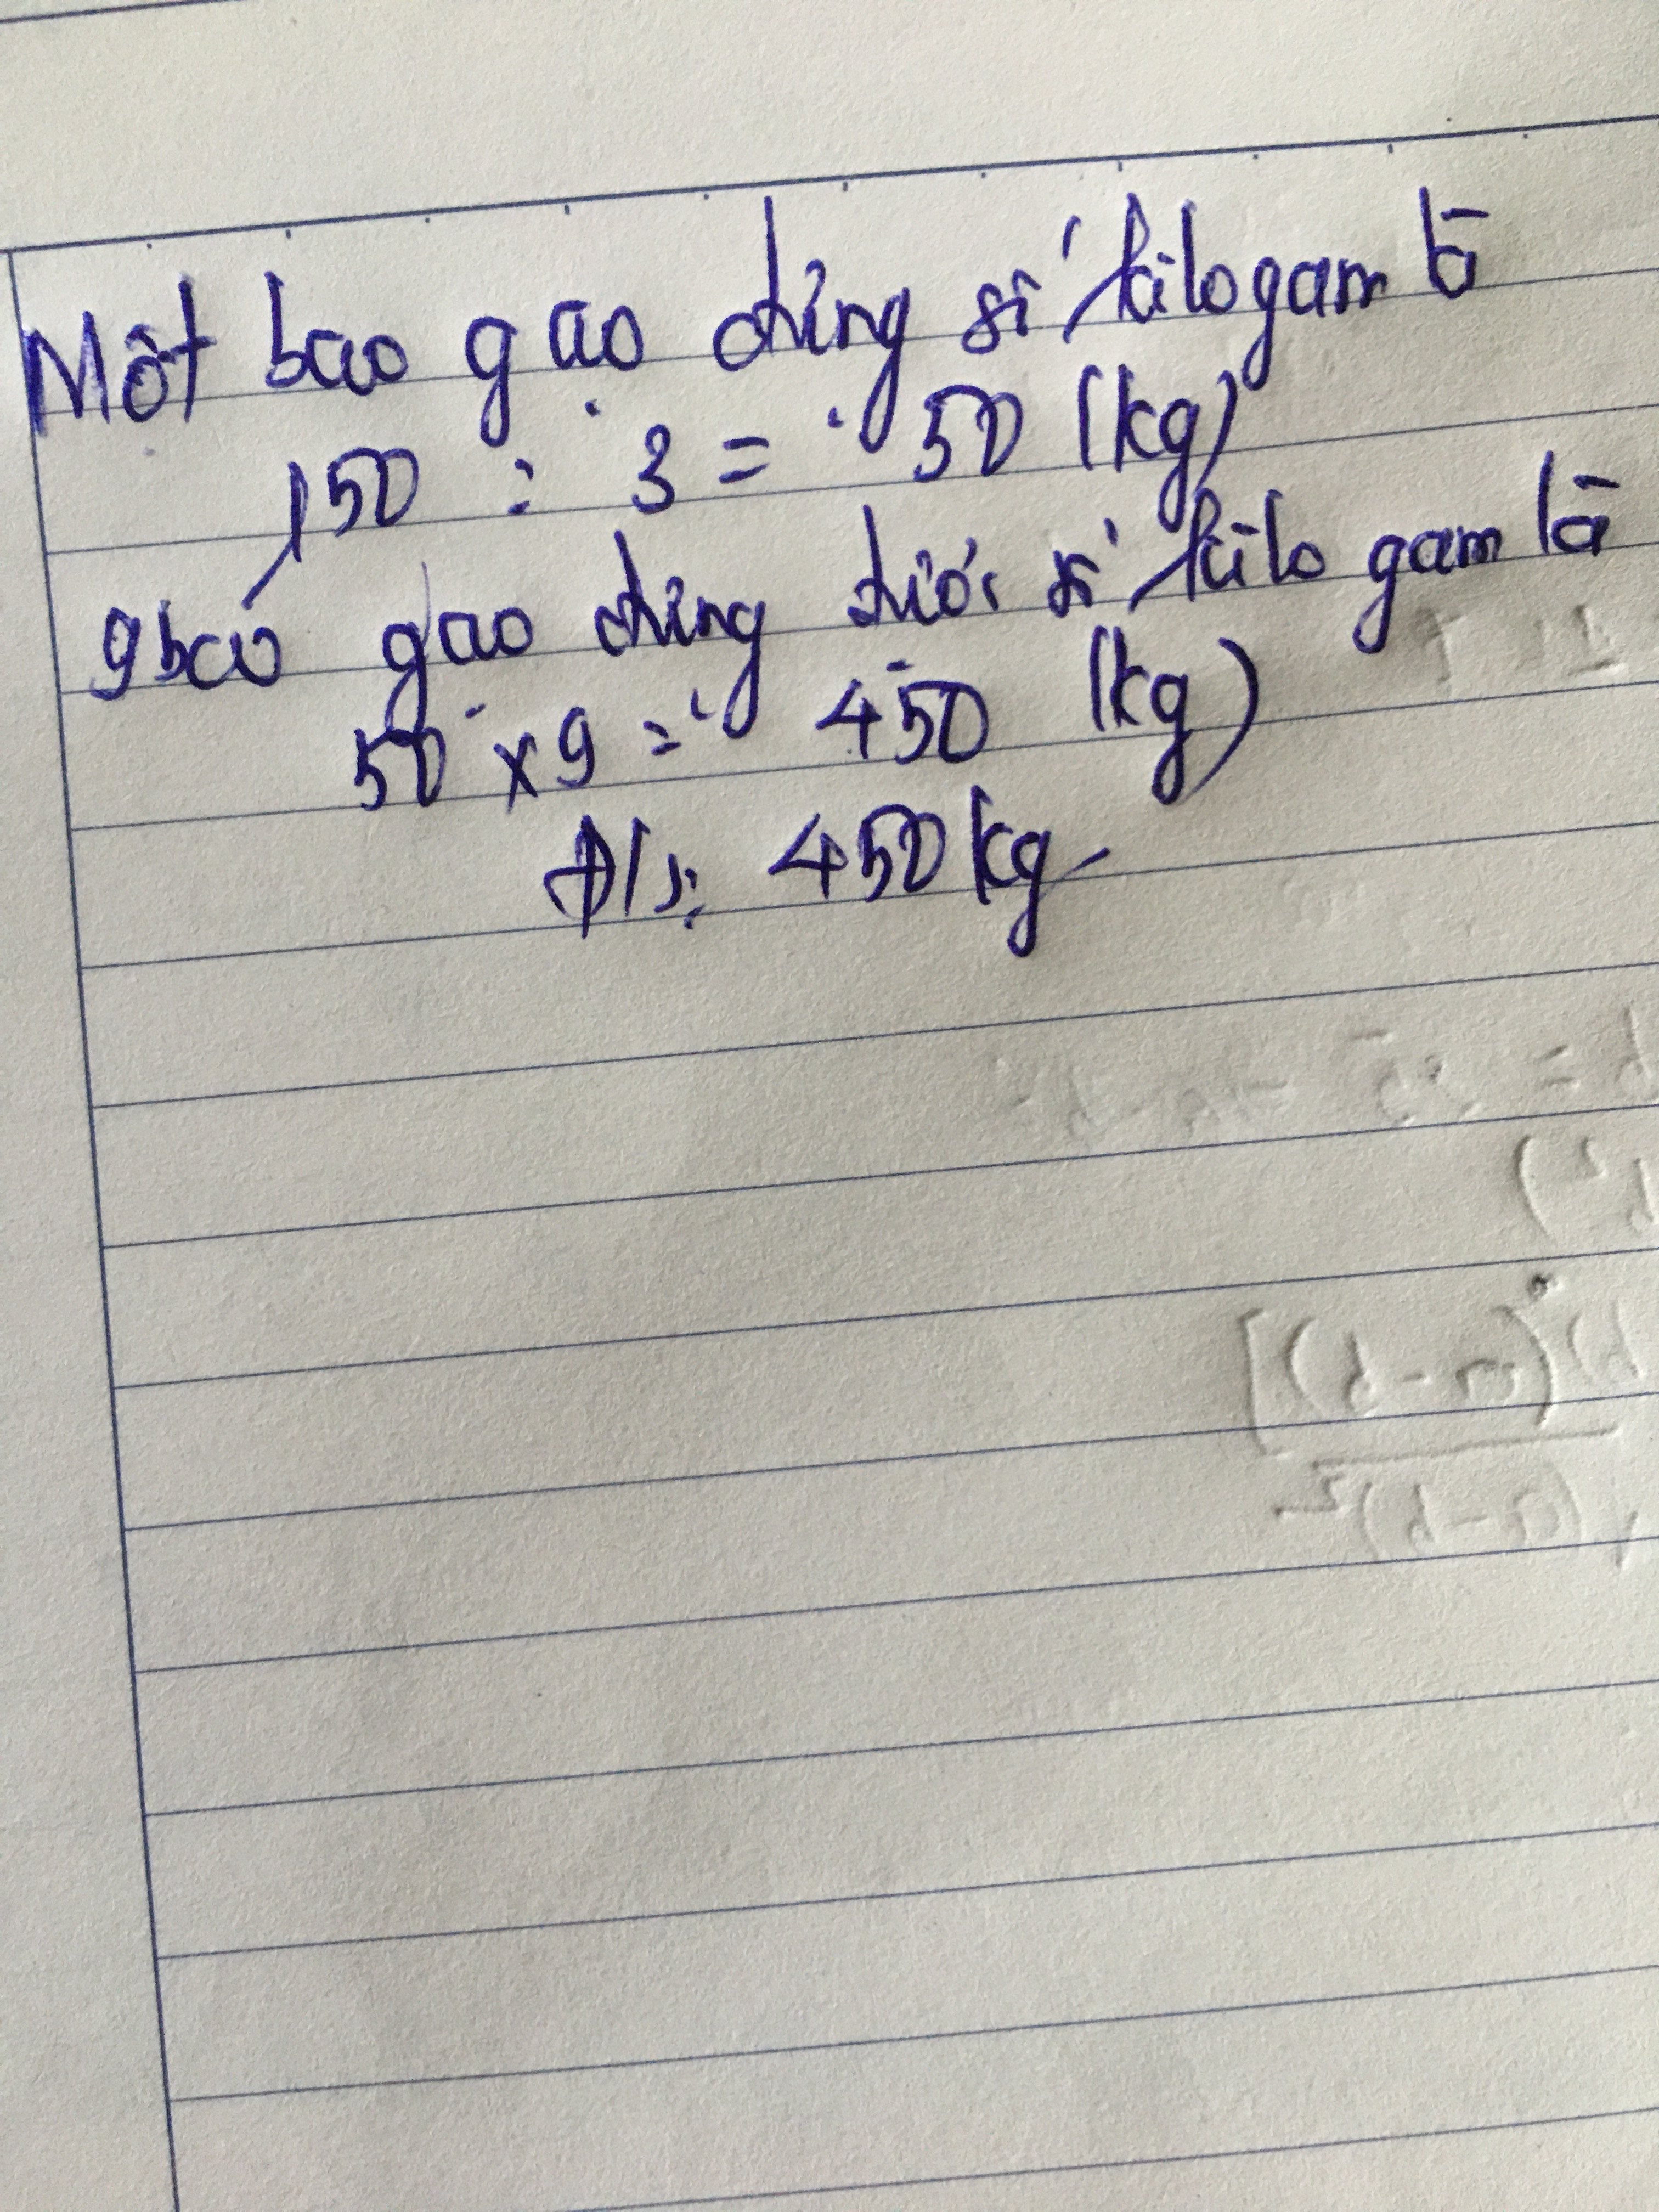 Một bao gạo đựng số kilogam là
150 : 3 = 50 (kg)
9 bao gạo đựng được số kilo gam là
50 x 9 = 450 (kg)
Đ/s: 450 kg